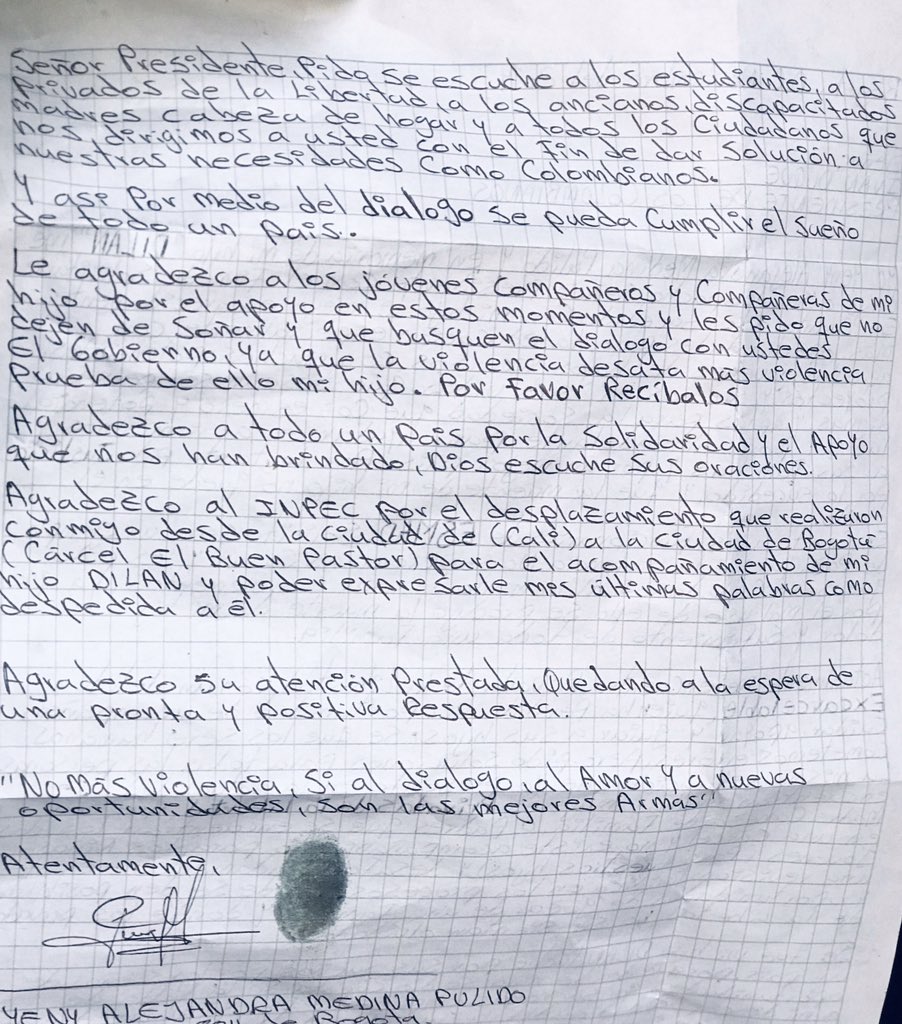 Señor Presidente, Pido se escuche a los estudiantes, a los
Privados de la Libertad, a los ancianos, discapacitados
Madres cabeza de hogar y a todos los Ciudadanos que
nos dirigimos a usted con el fin de dar Solución a
nuestras necesidades Como Colombianos.
Y asi Por medio del dialogo se pueda Cumplir el sueño
de todo un país.
Le agradezco a los jóvenes Compañeros y Compañeras de mi
hijo por el apoyo en estos momentos y les pido que no
dejen de Soñar y que busquen el dialogo con ustedes
El Gobierno, ya que la violencia desata más violencia
Prueba de ello mi hijo. Por Favor Recíbalos
Agradezco a todo un País Por la Solidaridad y el Apoyo
que nos han brindado, Dios escuche Sus oraciones.
Agradezco al INPEC por el desplazamiento que realizaron
conmigo desde la ciudad de (Cali) a la ciudad de Bogotá
(Cárcel El Buen Pastor) para el acompañamiento de mi
hijo DILAN y poder expresarle mis últimas palabras como
despedida a él.
Agradezco su atención Prestada, Quedando a la espera de
una pronta y positiva Respuesta.
"No Más Violencia, Si al dialogo, al Amor y a nuevas
oportunidades, son las mejores Armas"
Atentamente,
YENY ALEJANDRA MEDINA PULIDO
de Bogotá.